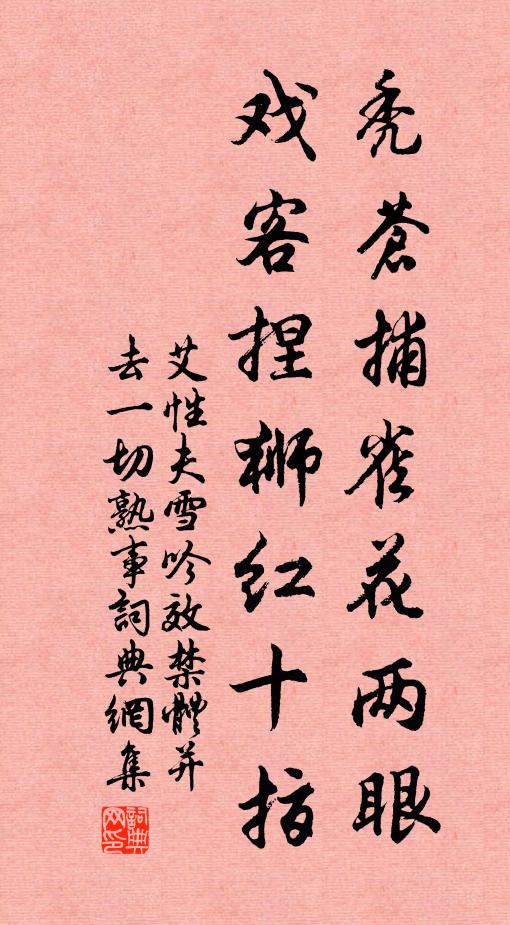 秃蒼捕雀花两眼
戏客捏獅红十指
艾性夫雪吟效禁體并
去一切熟事詞典網集
詞典
网印